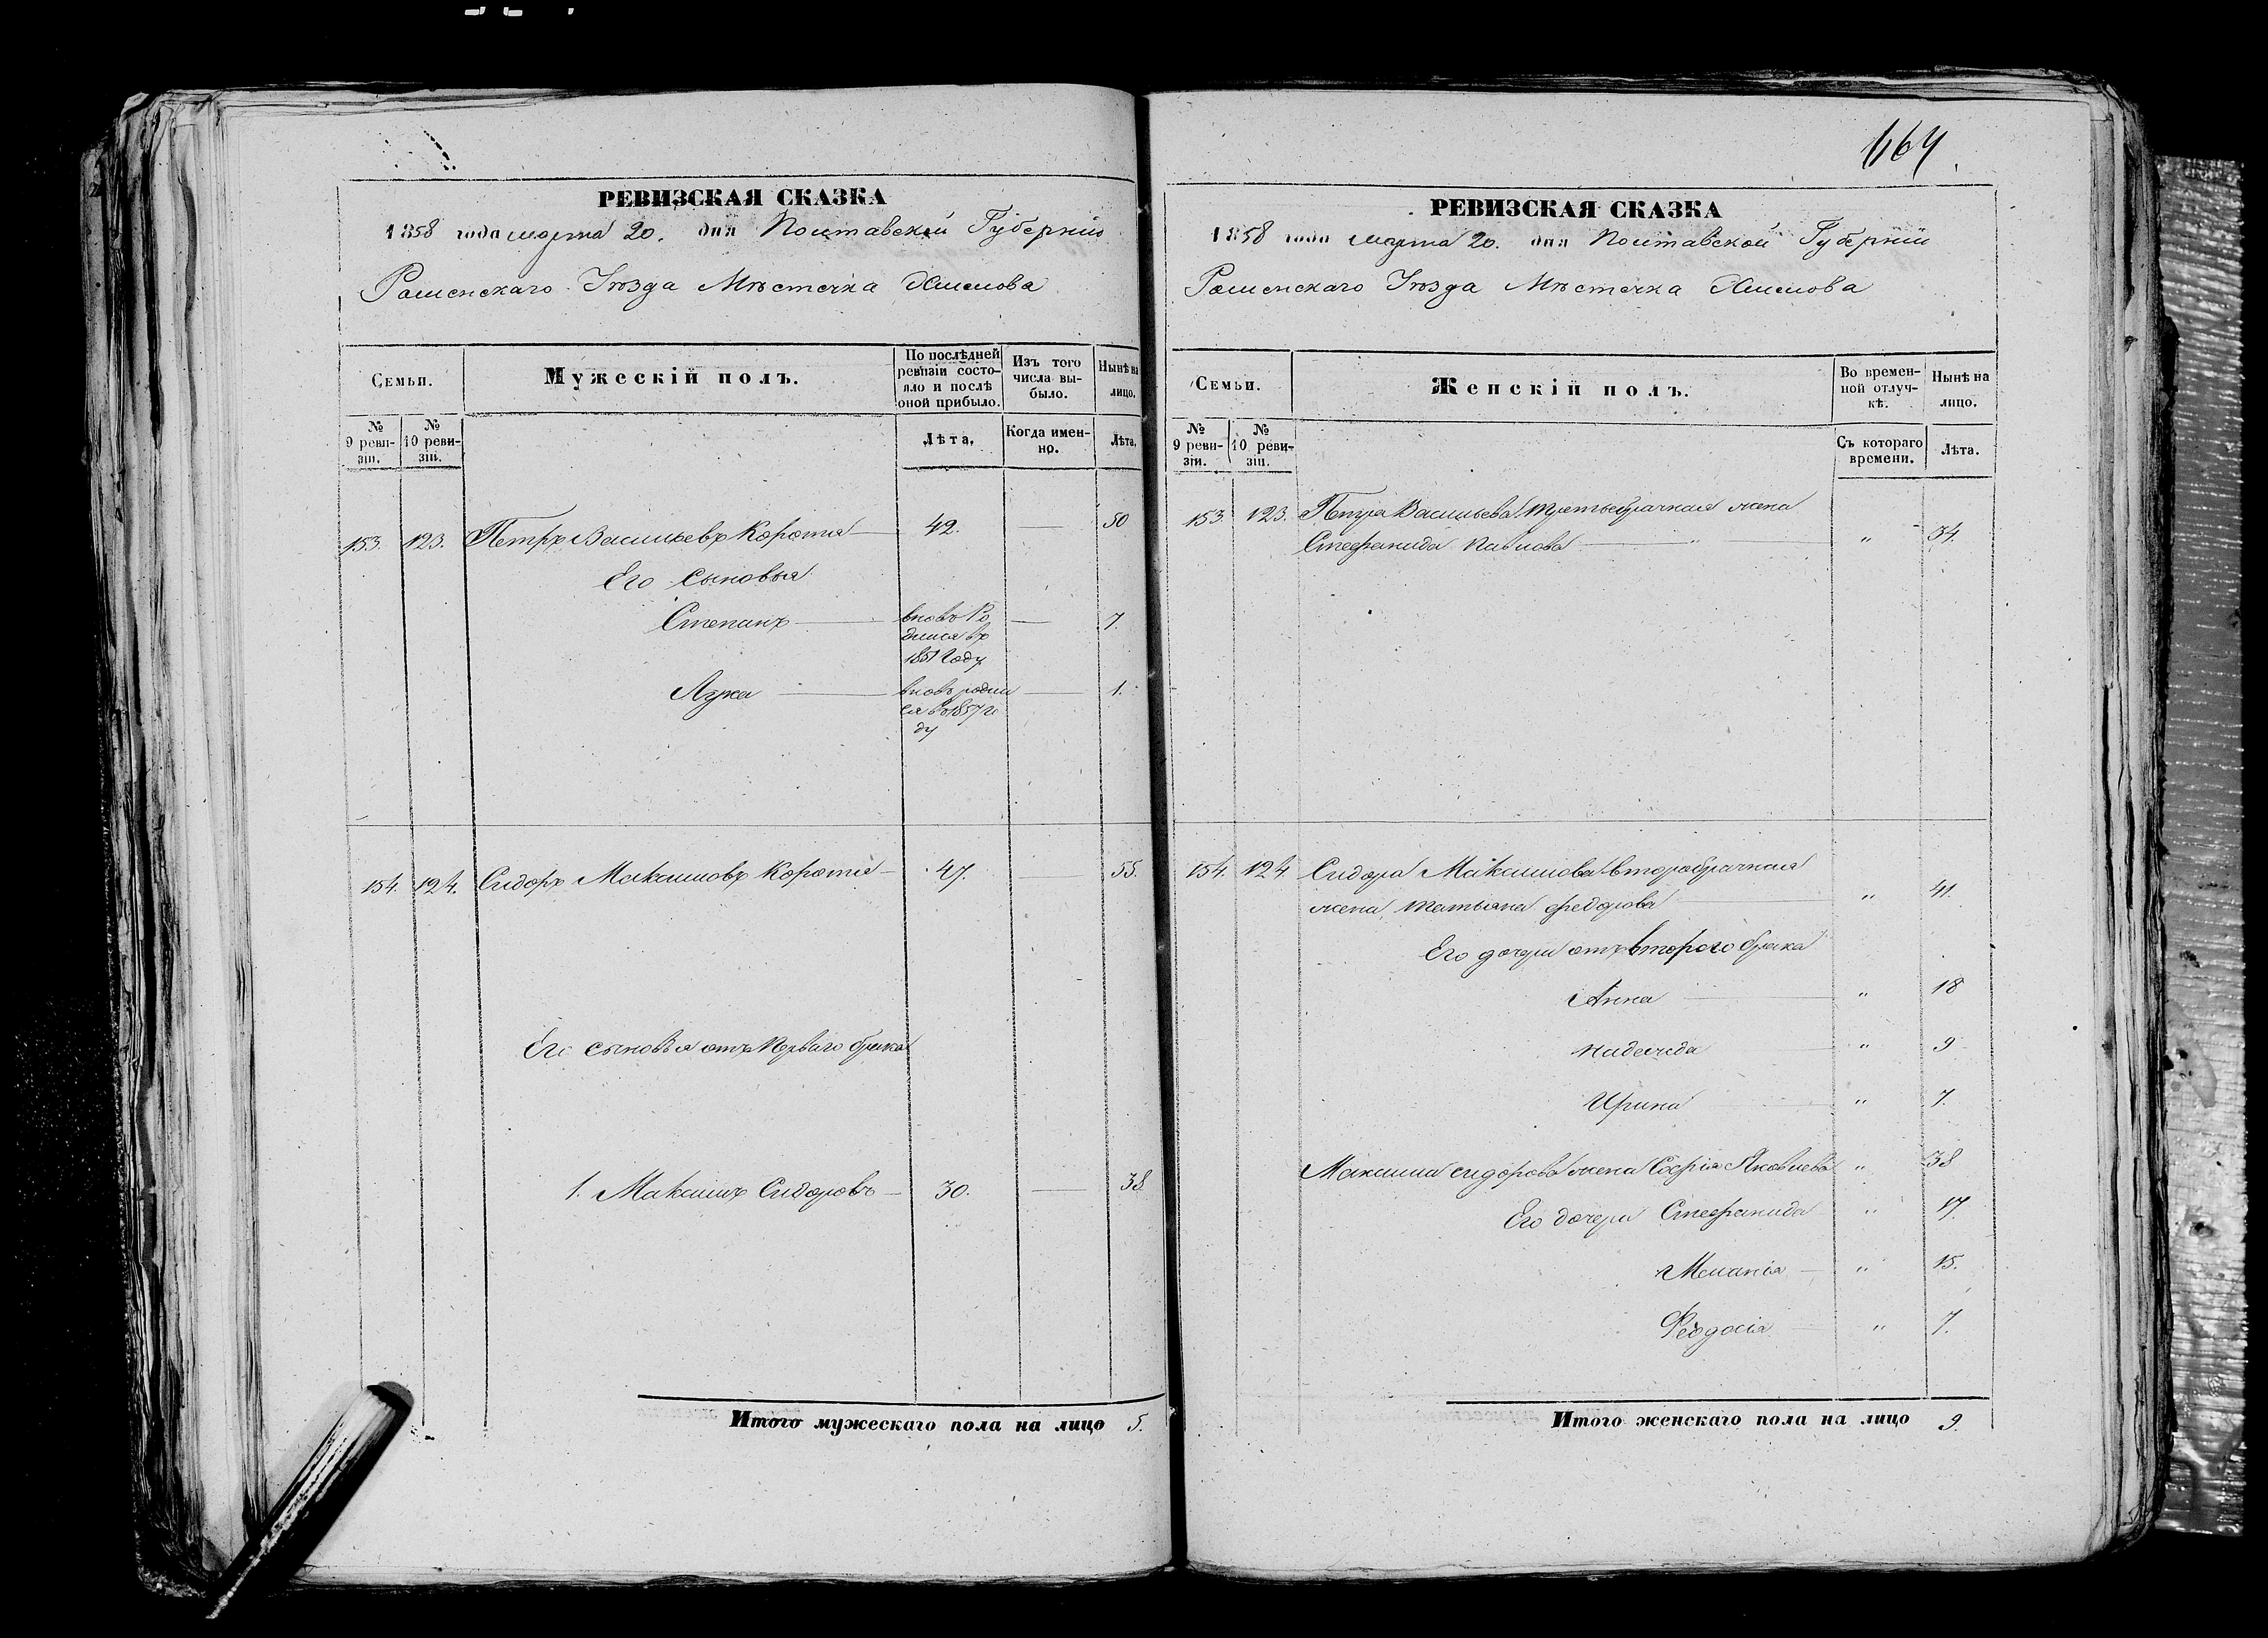 664
РЕВИЗСКАЯ СКАЗКА
1858 года марта 20. дня Полтавской Губерніи
Роменскаго Уѣзда Мѣстечка Хмелова
Семьи.
Мужескій полъ.
По послѣдней ревизіи состояло и послѣ оной прибыло.
Изъ того числа выбыло.
Нынѣ на лицо.
№ 9 ревизіи.
№ 10 ревизіи.
Лѣта.
Когда именно.
Лѣта.
153. 123. Петръ Васильевъ Коротя 42. 50
Его сыновья
Степанъ вновь Ро 7.
дился въ
1851 Году
Лука вновь родил 1.
ся въ 1857 го
ду
154. 124. Сидоръ Максимовъ Коротя 47. 55.
Его сыновья отъ Перваго брака
1. Максимъ Сидоровъ 30. 38
Итого мужескаго пола на лицо 5.
РЕВИЗСКАЯ СКАЗКА
1858 года марта 20. дня Полтавской Губерніи
Роменскаго Уѣзда Мѣстечка Хмелова
Семьи.
Женскій полъ.
Во временной отлучкѣ.
Нынѣ на лицо.
№ 9 ревизіи.
№ 10 ревизіи.
Съ котораго времени.
Лѣта.
153. 123. Петра Васильева третьебрачная жена
Стефанида Павлова " 34.
154. 124. Сидора Максимова второбрачная
жена Татьяна Федорова " 41.
Его дочери отъ второго брака
Анна " 18
Надежда " 9
Ирина " 7.
Максима Сидорова жена Софія Яковлева " 38
Его дочери Стефанида " 17.
Меланія " 15.
Феодосія " 7.
Итого женскаго пола на лицо 9.